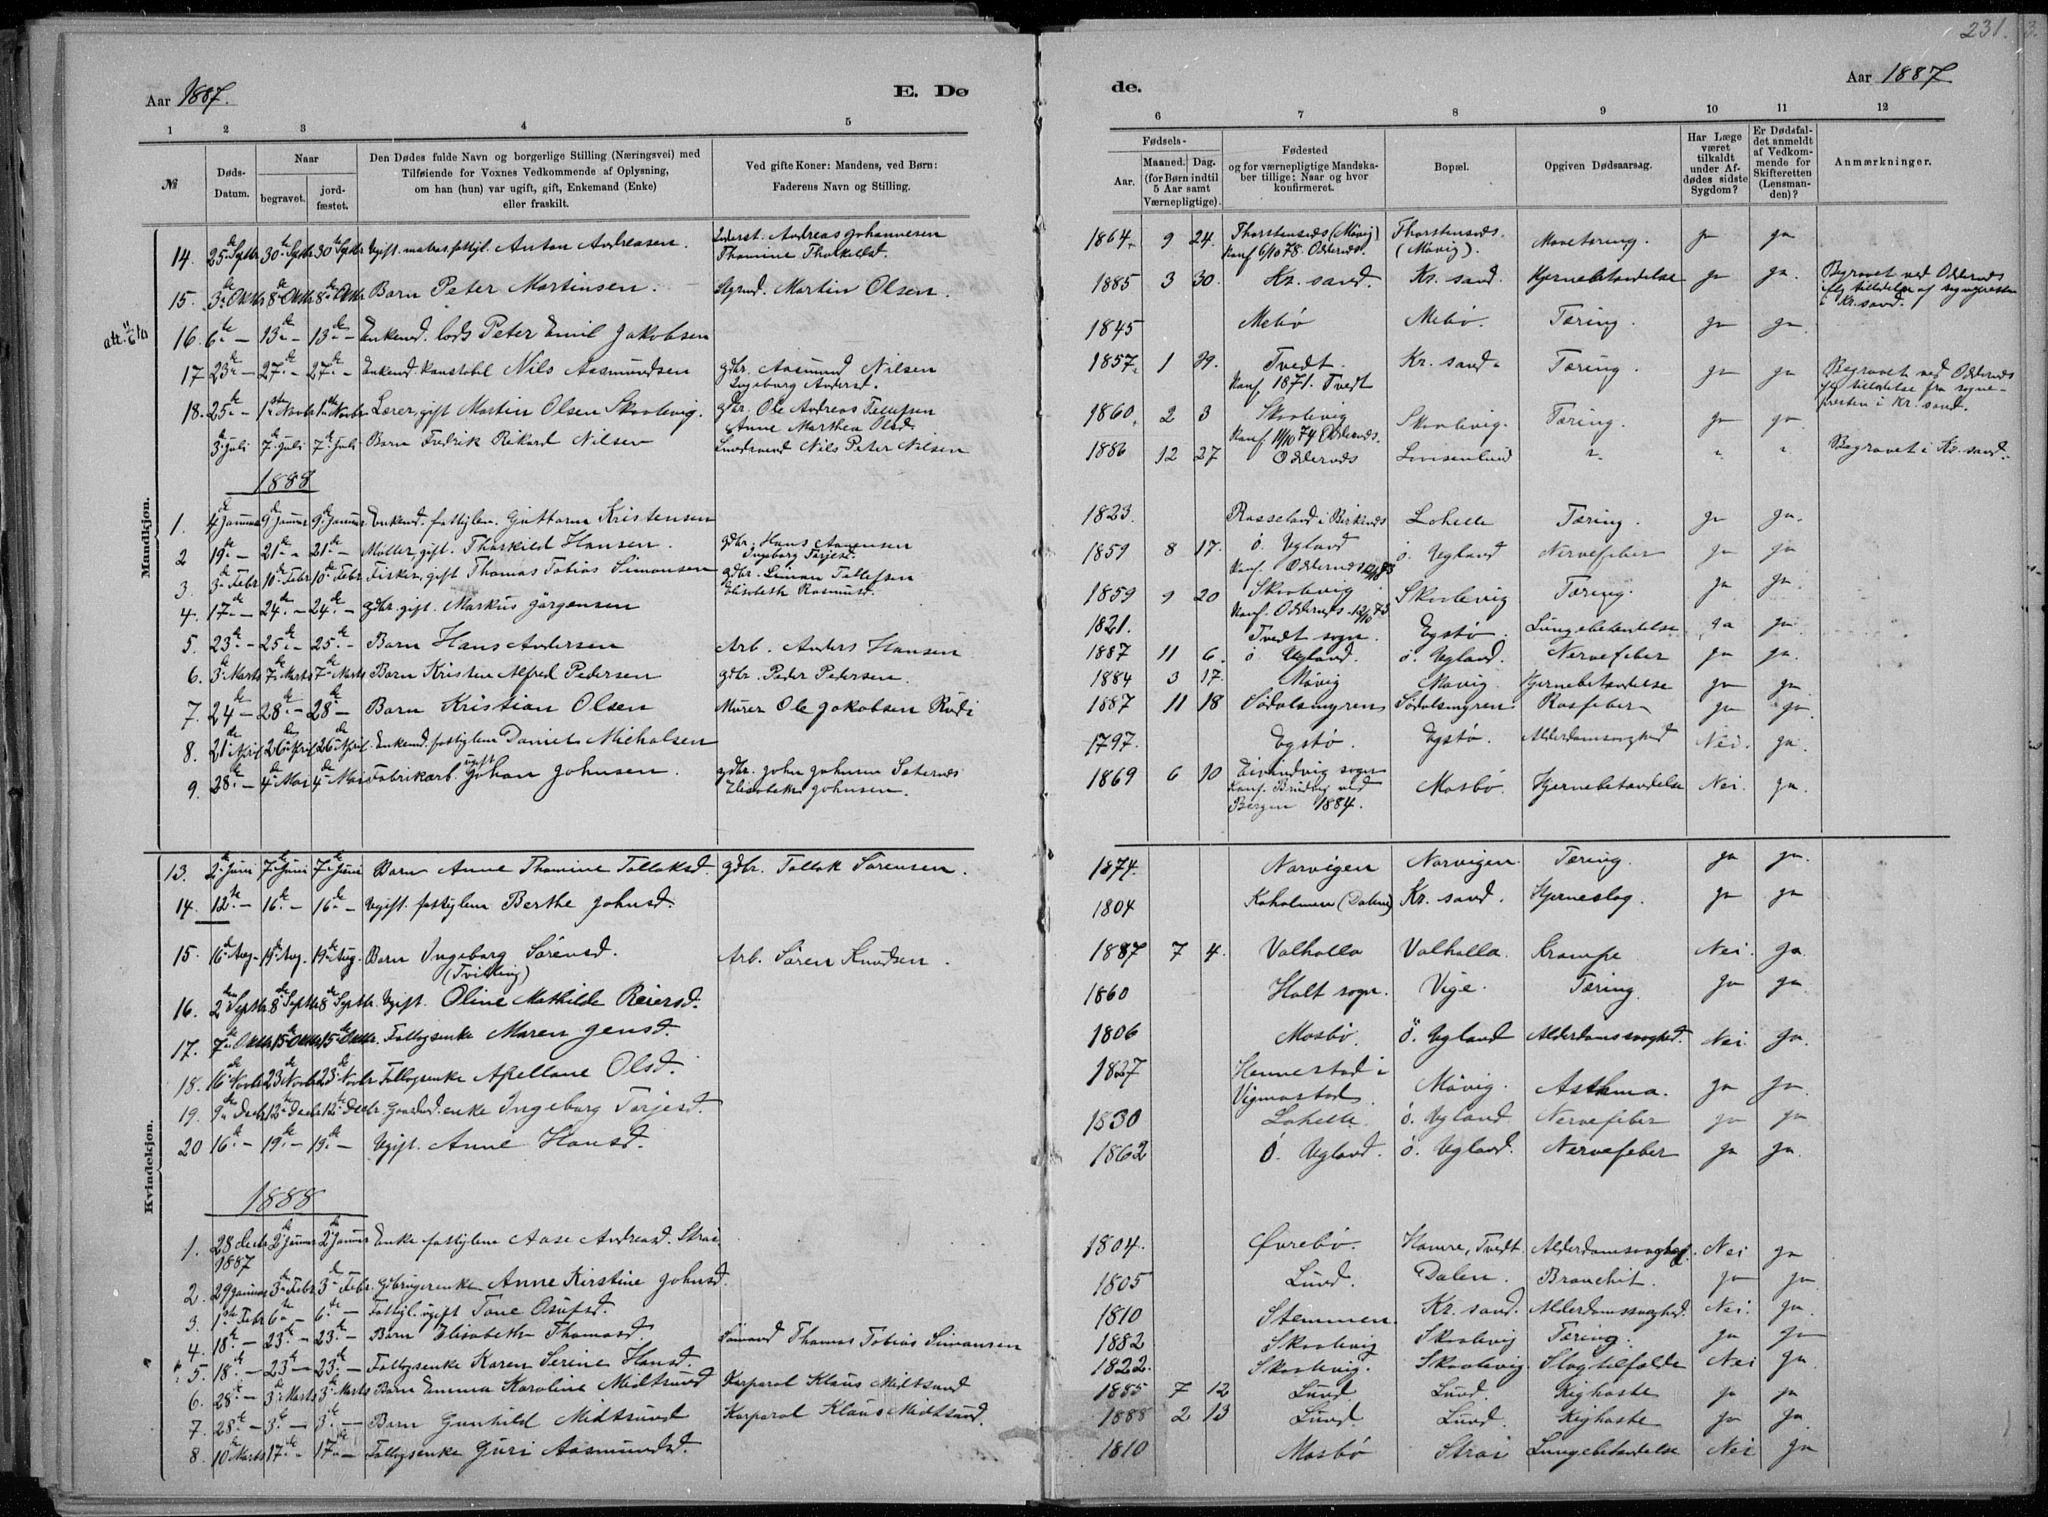 231. 3.
Aar 1887. E. Dø
de. Aar 1887
1 2 3 4 5
6 7 8 9 10 11 12
№ Døds-Datum. Naar begravet. jordfæstet. Den Dødes fulde Navn og borgerlige Stilling (Næringsvei) med Tilføiende for Voxnes Vedkommende af Oplysning, om han (hun) var ugift, gift, Enkemand (Enke) eller fraskilt. Ved gifte Koner: Mandens, ved Børn: Faderens Navn og Stilling.
Fødsels- Aar. Maaned. Dag. (for Børn indtil 5 Aar samt Værnepligtige). Fødested og for værnepligtige Mandskaber tillige: Naar og hvor konfirmeret. Bopæl. Opgiven Dødsaarsag. Har Læge været tilkaldt under Afdødes sidste Sygdom? Er Dødsfaldet anmeldt af Vedkommende for Skifteretten (Lensmanden)? Anmærkninger.
Mandkjøn.
14. 25de Septbr 30te Septbr 30te Septbr Ugift. Anton Andreasen. Andreas Johannesen
Thomine Thorkelsd. 1864. 9 24. Thorstensnes (Møvig) Thorstensnes (Møvig). ja ja
Konf 6/10 78. Oddernes.
15. 3de Oktbr 8de Oktbr 8de Oktbr Barn Peter Martinsen. Martin Olsen. 1885 3 30. Kr. sand. Kr. sand. Hjernebetændelse ja ja. Begravet ved Oddernes
i Kr. sand.
16. 6te — 13de — 13de — Enkemd. lods Peter Emil Jakobsen 1845 Mebø Mebø. Tæring. ja ja
17 23de — 27de — 27de — Enkemd. konstabel Nils Aasmundsen gdbr. Aasmund Nilsen
Ingeborg Andersd. 1857. 1 29. Tvedt. Kr. sand. Tæring. ja ja Begravet ved Oddernes
Konf. 1871. Tvedt
18. 25de — 1ste Novbr 1ste Novbr Lærer, gift Martin Olsen Skaalevig. gdbr. Ole Andreas Tellefsen
Anne Marthea Olsd. 1860. 2 3 Skaalevig Skaalevig. Tæring. ja ja
Konf. 11/10 74 Oddernes.
3 Juli 7de Juli 7de Juli Barn Fredrik Rikard Nilsen Nils Peter Nilsen 1886 12 27 Oddernes Begravet i Kr. sand.
1888
1. 4de Januar 9de Januar 9de Januar Enkemd. Guttorm Kristensen 1823. Rosseland i Birkenes Lohelle Tæring. ja ja.
2 19de — 21de — 21de — Møller, gift. Thorkild Hansen. gdbr. Hans Aanensen
Ingeborg Tarjesd. 1859 8 17. ö. Ugland ö. Ugland Nervefeber ja ja
3. 3de Febr. 10de Febr 10de Febr. Fisker, gift Thomas Tobias Simonsen gdbr. Simon Tellefsen
Elisabeth Rasmusd. 1859 9 20 Skaalevig Skaalevig Tæring. ja ja
4. 17de — 24de — 24de — gdbr. gift. Markus Jörgensen 1821. Tvedt sogn. Egstø. Lungebetændelse ja ja
5. 23de — 25de — 25de — Barn Hans Andersen Arb. Anders Hansen 1887 11 6. ö Ugland. ö. Ugland. Nervefeber ja ja.
6. 3de Marts 7de Marts 7de Marts Barn Kristen Alfred Pedersen gdbr. Peder Pedersen. 1884 3 17. Møvig Møvig. Hjernebetændelse ja ja.
7. 24de — 28de — 28de — Barn Kristian Olsen Murer Ole Jakobsen 1887 11 18 Södalsmyren Södalsmyren Rosfeber ja ja.
8. 21de April 26de April 26de April Enkemd. Daniel 1797. Egstø. Egstø. Alderdomssvaghed Nei. ja.
9. 28de — 4de Mai 4de Mai Fabrikarb. ugift Johan Johnsen. gdbr. John Johnsen
Elisabeth Johnsen. 1869 6 10 Eivindvig sogn Mosbö. Hjernebetændelse Nei. ja.
Bergen 1884.
Kvindekjøn.
13. 2den Juni 7de Juni 7de Juni Barn Anne Thomine Tallaksd. gdbr. Tallak Sørensen. 1874. Narvigen Narvigen. Tæring. ja ja.
14. 12te — 16de — 16de — Ugift. Berthe Johnsd. 1804 Kaholmen (Dalene) Kr. sand. Hjerneslag ja ja
15. 16de Aug. 19de Aug. 19de Aug. Barn Ingeborg Sørensd.
(Tvilling) Arb. Søren Knudsen. 1887 7 4. Valhalla Valhalla. Krampe Nei. ja.
16. 2den Septbr 8de Septbr 8de Septbr. Ugift. Oline Mathilde Reiersd. 1860 Holt sogn. Vige. Tæring. ja ja.
17. 7de Oktbr 15de Oktbr 15de Oktbr. Maren Jensd. 1806 Mosbö. ö. Ugland Alderdomssvaghed. Nei. ja.
18. 16de Novbr 23de Novbr 23de Novbr Apellone Olsd. 1827 Hennestad i
Vigmostad Møvig. Asthma. ja ja
19. 9de Decbr 12te Decbr 12te Decbr. enke Ingeborg Tarjesd. 1830 Lohelle. ö. Ugland Nervefeber ja ja
20 16de — 19de — 19de — Ugift. Anne Hansd. 1862 ö. Ugland. ö. Ugland. Nervefeber ja ja.
1888
1. 28 Decbr 1887 2den Januar 2den Januar Enke Aase Andreasd. Strai 1804. Øvrebø. Tvedt. Alderdomssvaghed. Nei ja
2. 29 Januar 3de Febr. 3de Febr. Anne Kirstine Johnsd. 1805 Lund. Dalen. Bronchit. ja ja
3 1ste Febr 6te — 6te — ugift Tone Osufsd. 1810 Stemmen. Kr. sand. Alderdomssvaghed. Nei. ja.
4. 18de — 23de — 23de — Barn Elisabeth Thomasd. Thomas Tobias Simonsen 1882 Skaalevig Skaalevig Tæring. ja ja
5. 18de — 23de — 23de — Karen Serine Hansd. 1822. Skaalevig. Skaalevig. Slagtilfælde Nei ja.
6. 28de — 3de Marts 3de Marts Barn Emma Karoline Midtsund Korporal Klaus Midtsund 1885 7 12 Lund Lund. Kighoste ja ja
7. 28de — 3de — 3de — Barn Gunhild Midtsund Korporal Klaus Midtsund. 1888 2 13 Lund. Lund. Kighoste ja ja.
8. 10de Marts 17de — 17de — Guri Aasmundsd. 1810 Mosbö Strai Lungebetændelse Nei ja